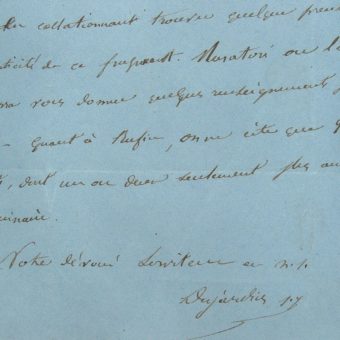 collationnant trouver quelque preuve
de ce fragment. Muratori ou l
vous donner quelques renseignements
- Quant à Rufin, on ne cite que
, dont un ou deux seulement
Votre dévoué serviteur en n. s.
Dujardin s.j